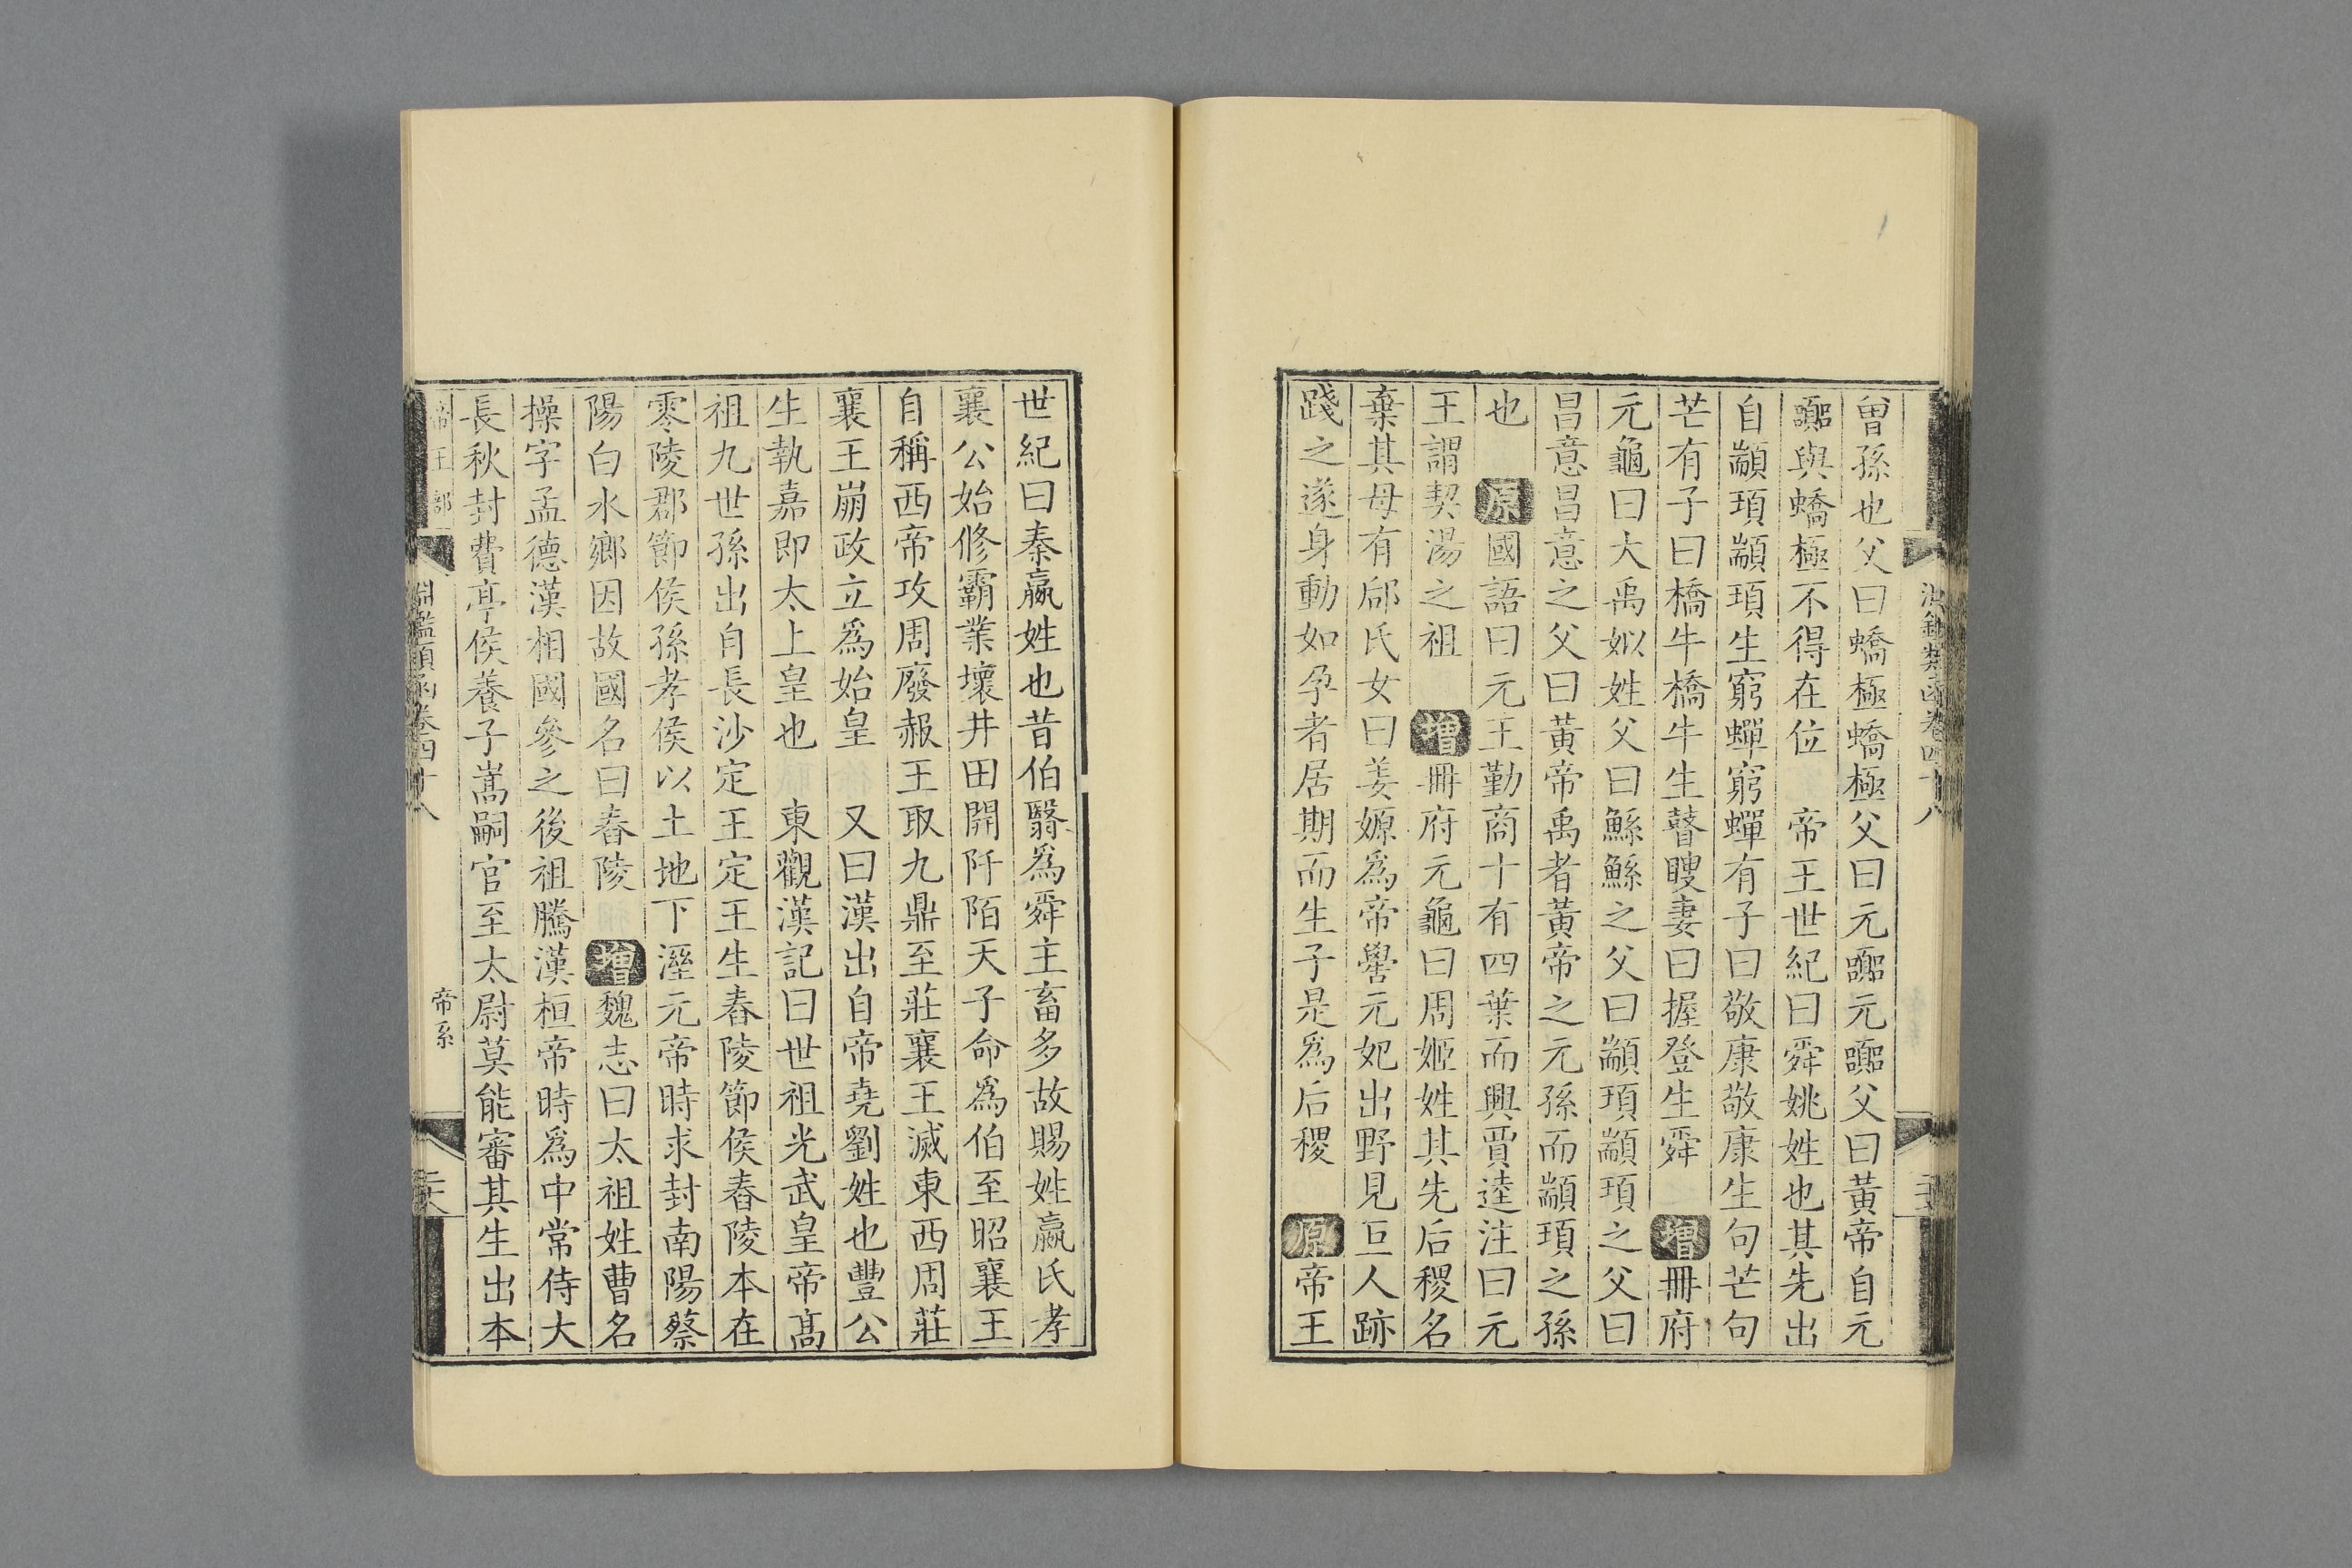 曾孫也父曰蟜極蟜極父曰元囂元囂父曰黃帝自元
囂與蟜極不得在位　帝王世紀曰舜姚姓也其先出
自顓頊顓頊生窮蟬窮蟬有子曰敬康敬康生句芒句
芒有子曰橋牛橋牛生瞽瞍妻曰握登生舜　增冊府
元龜曰大禹姒姓父曰鯀鯀之父曰顓頊顓頊之父曰
昌意昌意之父曰黃帝禹者黃帝之元孫而顓頊之孫
也　原國語曰元王勤商十有四葉而興賈逵注曰元
王謂契湯之祖　增冊府元龜曰周姬姓其先后稷名
棄其母有邰氏女曰姜嫄爲帝嚳元妃出野見巨人跡
踐之遂身動如孕者居期而生子是爲后稷　原帝王
世紀曰秦嬴姓也昔伯翳爲舜主畜多故賜姓嬴氏孝
襄公始修霸業壞井田開阡陌天子命爲伯至昭襄王
自稱西帝攻周廢赧王取九鼎至莊襄王滅東西周莊
襄王崩政立爲始皇　又曰漢出自帝堯劉姓也豐公
生執嘉即太上皇也　東觀漢記曰世祖光武皇帝高
祖九世孫出自長沙定王定王生舂陵節侯舂陵本在
零陵郡節侯孫孝侯以土地下溼元帝時求封南陽蔡
陽白水鄉因故國名曰舂陵　增魏志曰太祖姓曹名
操字孟德漢相國參之後祖騰漢桓帝時爲中常侍大
長秋封費亭侯養子嵩嗣官至太尉莫能審其生出本
帝王部
淵鑑類函卷四十八
帝系